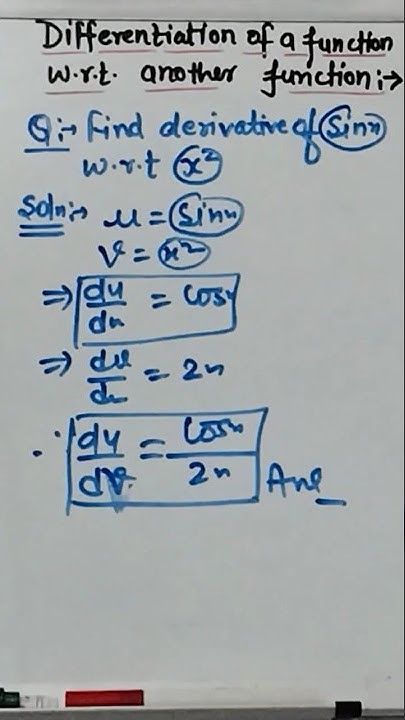 Differentiation of a function
w.r.t. another function:→
Q:→ Find derivative of sinx
w.r.t x²
Soln:→ u = sinx
v = x²
⇒ du/dx = cosx
⇒ dv/dx = 2x
∴ du/dv = cosx/2x Ans